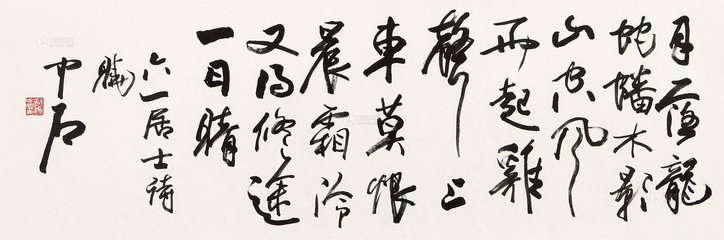 月龍
蛇蟠木影
山空風
雨起雞
聲上
車莫恨
晨霜冷
又得修途
一日晴
六一居士詩
中石